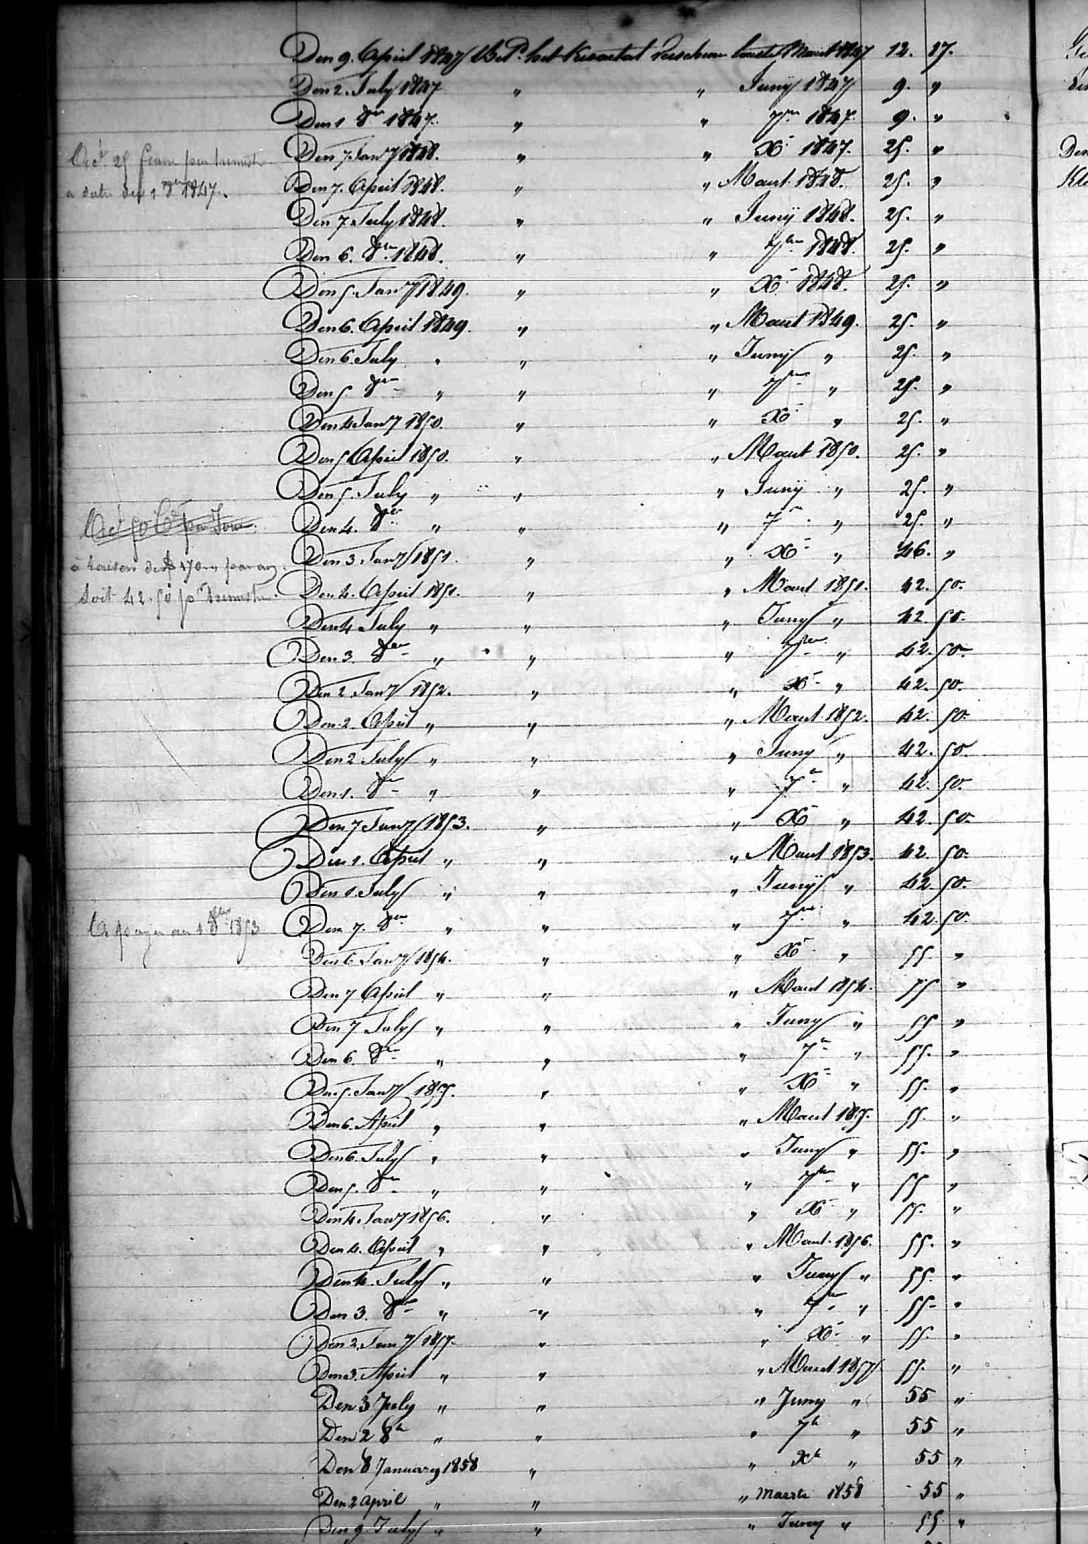 Den 9. April 1847 Bet. P. het Kwartaal verschenen laaste Maart 1847 12. 27.
Den 2. July 1847 " " Junij 1847 9. "
Den 1 8er 1847. " " 7er 1847. 9. "
Den 7. Janry 1848. " " Xr 1847. 25. "
Acct 25 francs par trimestre
à dater du 1 8er 1847.
Den 7. April 1848. " " Maart 1848. 25. "
Den 7. July 1848. " " Junij 1848. 25. "
Den 6. 8er 1848. " " 7er 1848. 25. "
Den 5. Janry 1849. " " Xr 1848. 25. "
Den 6. April 1849. " " Maart 1849. 25. "
Den 6. July " " " Junij " 25. "
Den 5. 8er " " " 7er " 25. "
Den 4 Janry 1850. " " Xr " 25. "
Den 5 April 1850. " " Maart 1850. 25. "
Den 5. July " " " Junij " 25. "
Den 4. 8er " " " 7r " 25. "
Acct 50 Cs par Jour.
à raison de f 170 par an.
soit 42.50 pr Trimestre.
Den 3. Janry 1851. " " Xr " 46. "
Den 4. April 1851. " " Maart 1851. 42. 50.
Den 4 July " " " Juny " 42. 50.
Den 3. 8er " " " 7er " 42. 50.
Den 2 Janry 1852. " " Xr " 42. 50.
Den 2. April " " " Maart 1852. 42. 50.
Den 2 July " " " Juny " 42. 50.
Den 1. 8er " " " 7r " 42. 50.
Den 7 Janry 1853. " " Xr " 42. 50.
Den 1. April " " " Maart 1853. 42. 50.
Den 1. July " " " Junij " 42. 50.
Den 7. 8er " " " 7er " 42. 50.
à payer au 1 8bre 1853
Den 6. Janry 1854. " " Xr " 55 "
Den 7 April " " " Maart 1854. 55 "
Den 7 July " " " Juny " 55 "
Den 6. 8er " " " 7r " 55. "
Den 5. Janry 1855. " " Xr " 55. "
Den 6. April " " " Maart 1855. 55. "
Den 6. July " " " Juny " 55. "
Den 5. 8er " " " 7er " 55 "
Den 4. Janry 1856. " " Xr " 55. "
Den 4. April " " " Maart 1856. 55. "
Den 4. July " " " Juny " 55. "
Den 3. 8er " " " 7r " 55. "
Den 2. Janry 1857. " " Xr " 55. "
Den 3. April " " " Maart 1857 55. "
Den 3 July " " " Juny " 55 "
Den 2 8br " " " 7br " 55 "
Den 8 January 1858 " " Xbr " 55 "
Den 2 april " " " maarte 1858 55 "
Den 9 July " " " Juny " 55 "